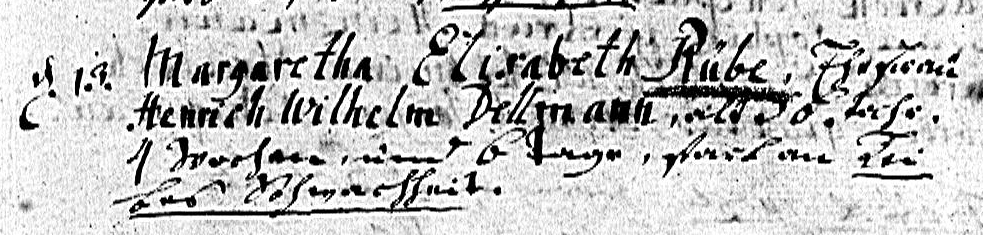 d. 13. Margaretha Elisabeth Rübe, Ehefrau
Henrich Wilhelm Dellmann, alt Jahr.
4 Wochen, und 6 Tage, starb an Lei
bes Schwachheit.